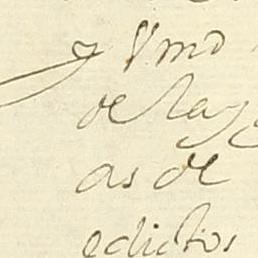 y Vmd
de la y
as de
edictos